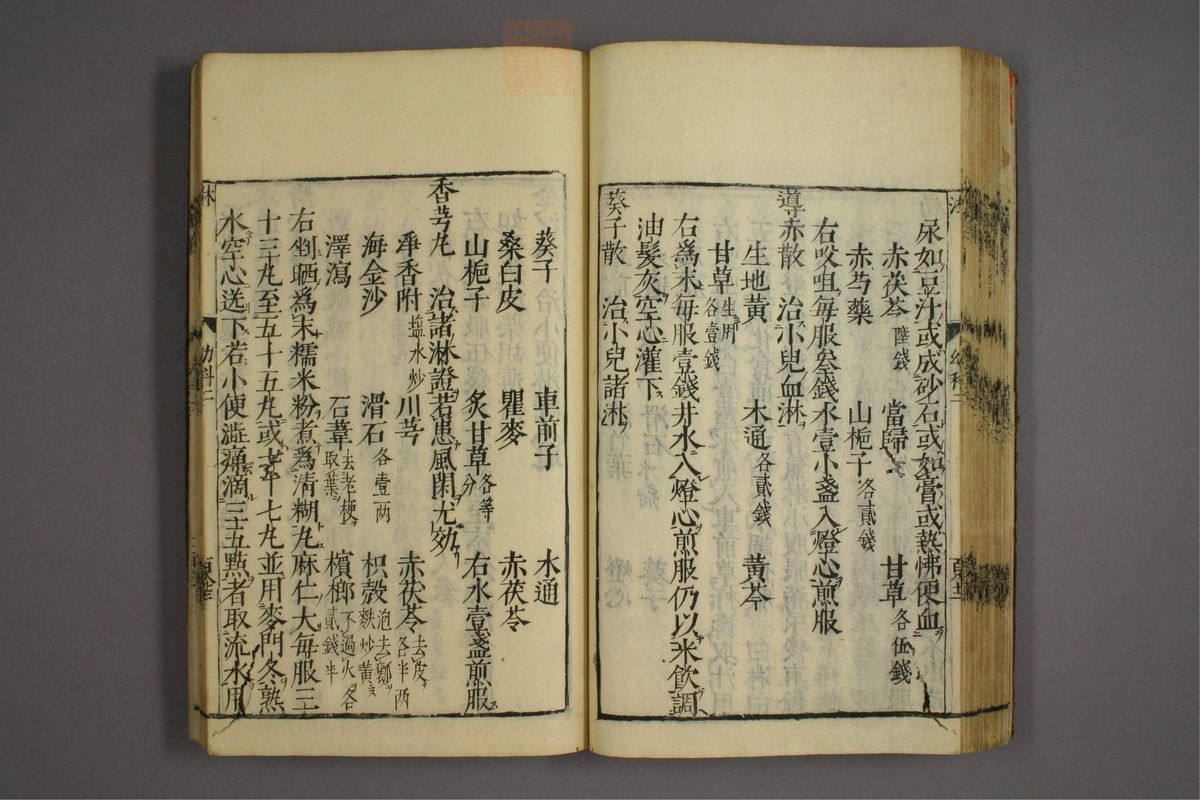 尿如豆汁或成砂石或如膏或熱怫便血
赤茯苓陸錢 當歸 甘草各伍錢
赤芍藥 山梔子各貳錢
右㕮咀每服叄錢水壹小盞入燈心煎服
導赤散 治小兒血淋
生地黃 木通各貳錢 黃芩
甘草生用各壹錢
右爲末每服壹錢井水入燈心煎服仍以米飲調
油髮灰空心灌下
葵子散 治小兒諸淋
葵子 車前子 木通
桑白皮 瞿麥 赤茯苓
山梔子 炙甘草各等分 右水壹盞煎服
香芎丸 治諸淋證若患風閉尤効
香附鹽水炒 川芎 赤茯苓去皮各半兩
海金沙 滑石各壹兩 枳殼泡去瓤麩炒黃
澤瀉 石葦去老梗取葉 檳榔不過火各貳錢半
右剉晒爲末糯米粉煮爲清糊丸麻仁大每服三
十三丸至五十五丸或七十七丸並用麥門冬熟
水空心送下若小便澁痛滴三五點者取流水用
幼科二